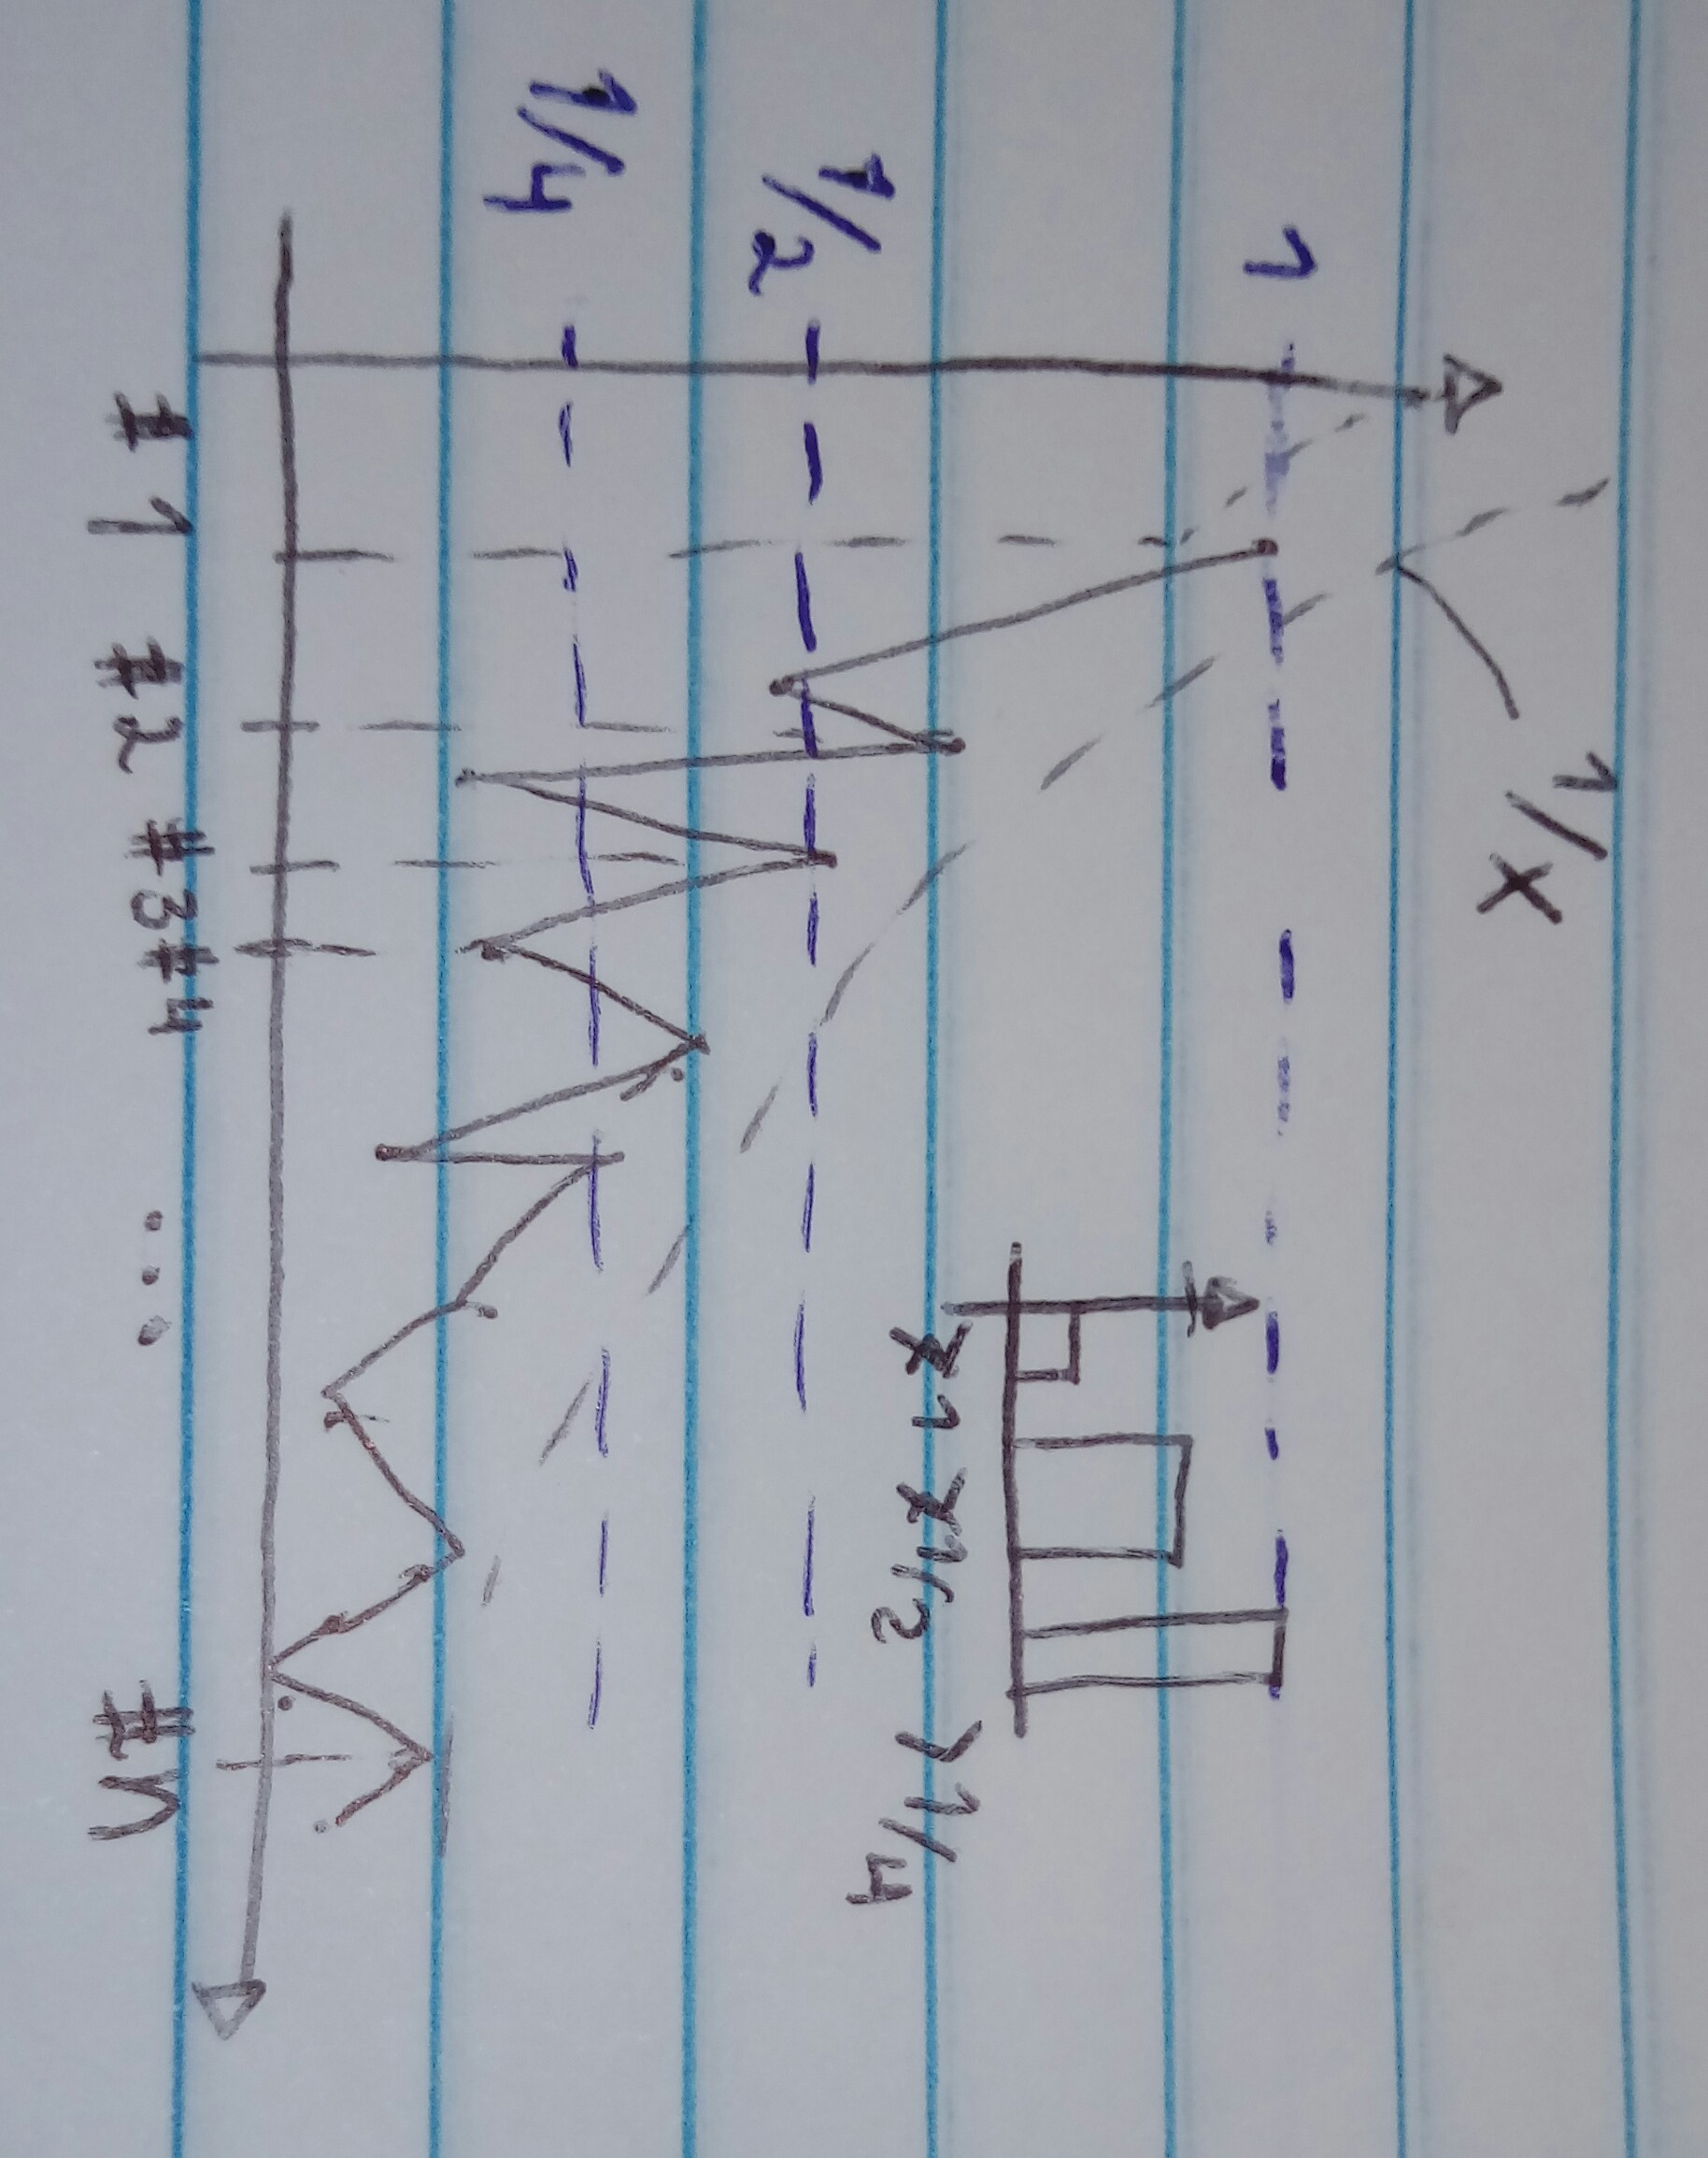 1/x
1
>1 >1/2 >1/4
1/2
1/4
#1 #2 #3 #4 ... #n